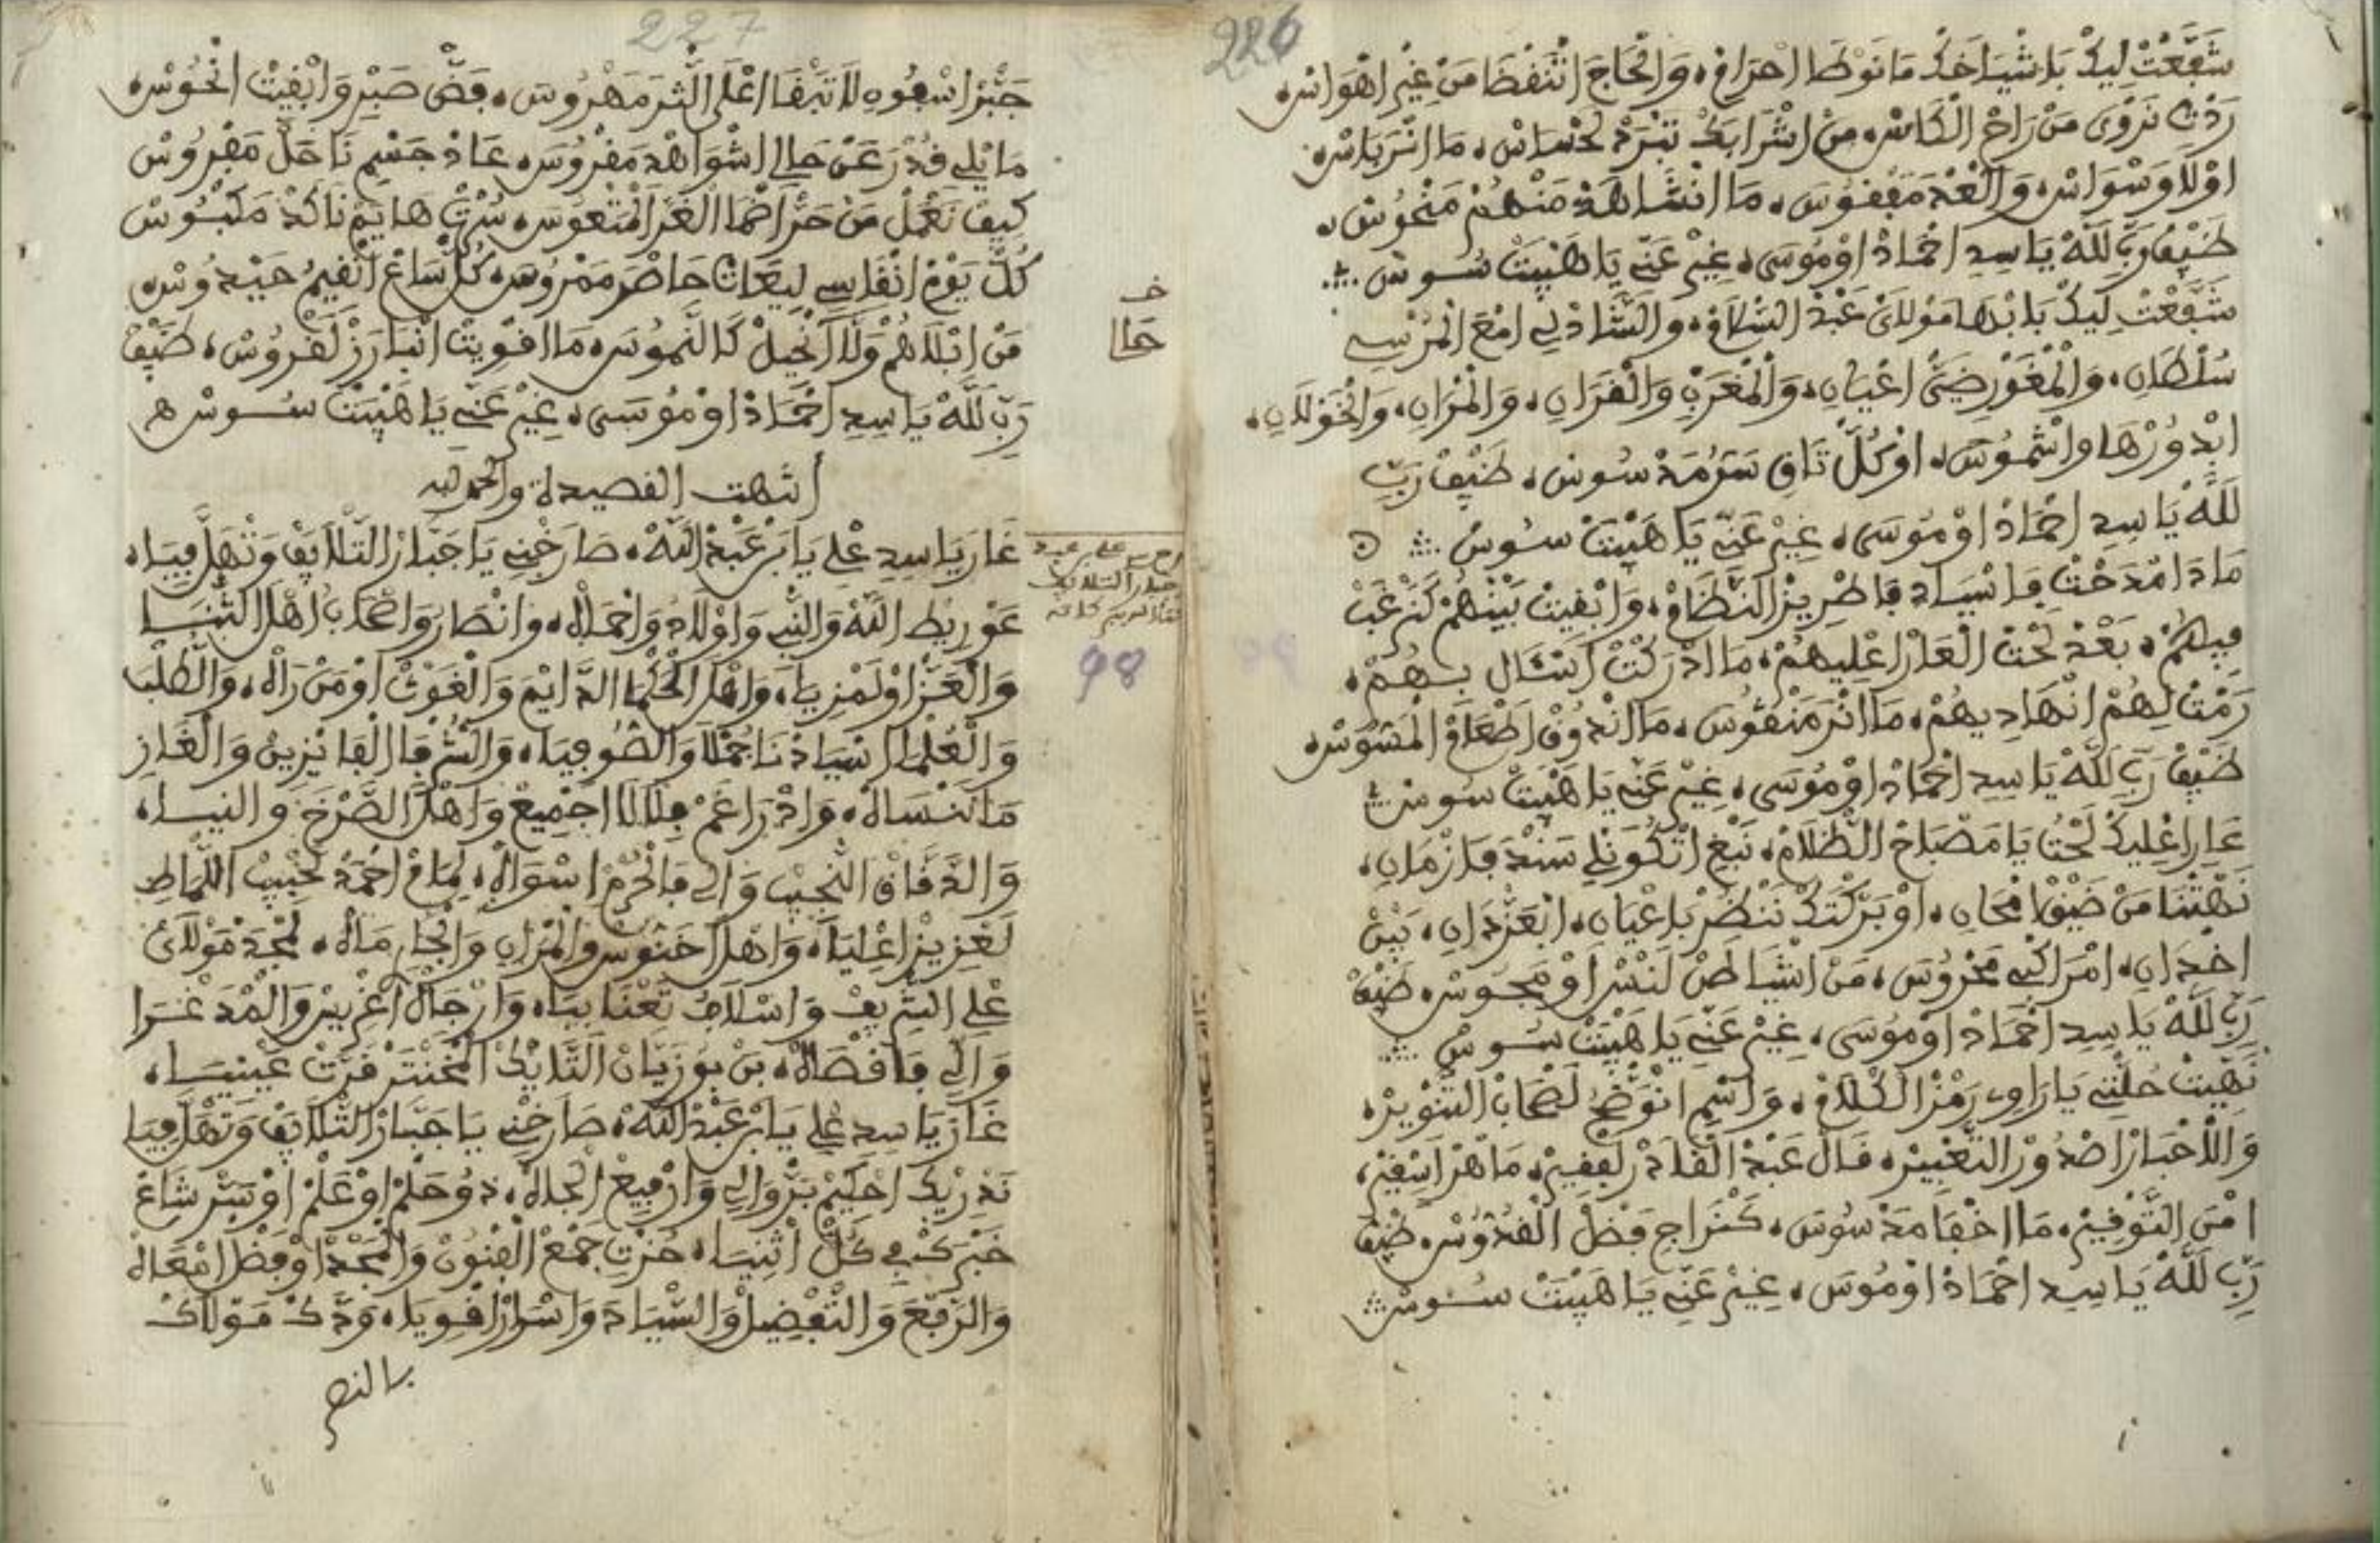 226
شَفَّعْتْ لِيكْ بَاشْيَاخَكْ مَا نَوْطَا احْرَامْ، وَالْحَاجَ اتَّنْفْضَا مَنْ غِيرْ اهْوَاسْ،
رَدْتِ نَرْوَى مَنْ رَاحْ الْكَاسْ، مِنْ اشْرَابَكْ تَبْرَدْ لَحْسَاسْ، مَا انْرَ بَاسْ،
اوْلَا وَسْوَاسْ، وَالْعَدْ مَعْفُوسْ، مَا انْشَاهَدْ مَنْهُمْ مَنْحُوسْ،
ضَيْفْ رَبِّ لَلَّهْ يَا سِيدِ احْمَادْ اوْمُوسَى، غِيرْ عَنِّي يَا هَيْبَتْ سُوسْ
شَفَّعْتْ لِيكْ بَابْهَا مَوْلَايَ عَبْدْ السَّلَامْ، وَالشَّادْلِي امْعَ الْمُرْسِي
سُلْطَانِ، وَالْمْغَوْرْ ضَيَّ اعْيَانِ، وَالْمْغَرَبْ وَالْقْرَانِ، وَالْمْزَانِ، وَالْخَوْلَانِ،
ابْدُورْهَا وَاشْمُوسَ، اوْكُلّْ تَاقِ سَرْمَدْ سُوسْ، ضَيْفْ رَبِّ
لَلَّهْ يَا سِيدِ احْمَادْ اوْمُوسَى، غِيرْ عَنِّي يَا هَيْبَتْ سُوسْ
مَادَا مْدَحْتْ فَاسْيَادْ فَاطْرِيزْ النّْظَامْ، وَابْقِيتْ بَيْنْهُمْ كَنْرْغَبْ
فِيهُمْ، بَعْدْ لَحْتْ الْعَارْ اعْلِيهُمْ، مَا ادْرَكْتْ اكْتَالْ بِهُمْ،
رَمْتْ لِهُمْ انْهَادِيهُمْ، مَا انْرَ مَنْغُوسَ، مَا انْدُوقْ اطْعَامْ الْمَسُوسْ،
ضَيْفْ رَبِّ لَلَّهْ يَا سِيدِ احْمَادْ اوْمُوسَى، غِيرْ عَنِّي يَا هَيْبَتْ سُوسْ
عَارِ اعْلِيكْ لَحْتُ يَا مَصْبَاحْ الظّْلَامْ، نَبْغِ اتْكُونْلِي سَنْدْ فَازْمَانِ،
نَهْتْنَا مَنْ ضَيْقْ امْحَانِ، اوْبَرَّكْتَكْ نَنْظَرْ بَاعْيَانِ، ابْعَزْدَانِ، بَيْنْ
اخْدَانِ، امْرَاكْبِي مَحْرُوسَ، مَنْ اشْيَاطَنْ لَنْسْ اوْمَجُوسْ، ضَيْفْ
رَبِّ لَلَّهْ يَا سِيدِ احْمَادْ اوْمُوسَى، غِيرْ عَنِّي يَا هَيْبَتْ سُوسْ
نَهِّيتْ حُلْتِي يَا رَاوِي رَمْزْ الْكْلَامْ، وَاسْمِ انْوَضّْحُ لَصْحَابْ التَّنْوِيرْ،
وَالَاخْبَارْ اصْدُورْ التَّعْبِيرْ، قَالْ عَبْدْ الْقَادَرْ لَفْقِيرْ، مَاهْرْ اسْفِيرْ،
امْنَ التَّوْفِيرْ، مَا اخْفَا مَدْسُوسَ، كَنْرَاجِ فَضْلْ الْقُدُّوسْ، ضَيْفْ
رَبِّ لَلَّهْ يَا سِيدِ احْمَادْ اوْمُوسَ، غِيرْ عَنِّي يَا هَيْبَتْ سُوسْ
227
جَبْرْ اسْقُوهِ لَا تَبْقَا اعْلَى الثّْرَ مَهْرُوسَ، فَضّْ صَبْرِ وَابْقِيتْ انْحُوسْ،
مَا يْلِي قُدْرَ عَنْ حَالِي اشْوَاهْدَ مَفْرُوسَ، عَادْ جَسْمِ نَاحَلْ مَفْرُوسْ
كِيفْ نَعْمَلْ مَنْ حَرّْ احْمَا الْغَرّْ الْمَتْعُوسَ، سُرْتْ هَايَمْ نَاكَدْ مَكْبُوسْ
كُلّْ يَوْمْ انْقَاسِي لِيعَاتْ حَاضْرَ مَمْرُوسَ، كُلّْ سَاعْ انْقِيمْ حَيْدُوسْ،
مَنْ ابْلَاهُمْ وَلَّا انْحِيلْ كَالنَّمُوسَ، مَا اقْوِيتْ انْبَارَزْ لَقْرُوسْ، ضَيْفْ
رَبِّ لَلَّهْ يَا سِيدِ احْمَادْ اوْمُوسَى، غِيرْ عَنِّي يَا هَيْبَتْ سُوسْ ه
انتهت القصيدة والحمد لله
غَارَ يَا سِيدِ عْلِي يَا بَنْ عَبْدْ اللَّهْ، صَارَخْنِي يَا جَبَّارْ التّْلَايَفْ وَتْهَلَّ فِيَا،
عَوْ رِيطِ اللَّهْ وَالنّْبِي وَاوْلَادُ وَاحْمَاهْ، وَانْصَارُ وَاصْحَابُ اهْلْ التّْنْيَا
وَالْعَزّْ اوْلَمْزِيَا، وَاهْلْ الْحُكْمَا الدَّايَمْ وَالْغَوْثْ اوْمَنْ رَاهْ، وَالطَّلْبَا
وَالْعُلْمَا اسْيَادْنَا جُمْلَا وَالصُّوفِيَا، وَالشُّرْفَا الْفَايْزِينْ وَالْغَازِ
مَا نَنْسَاهْ، وَادْرَاغَمْ فِلَالَا اجْمِيعْ وَاهْلْ الصَّرْخَ وَالنِّيَا،
وَالدَّقَّاقْ النّْجِيبْ وَالِي فَالْحُرْمْ اسْوَاهْ، لِمَامْ احْمَدْ لَحْبِيبْ اللَّمَاطِ
لَعْزِيزْ اعْلِيَا، وَاهْلْ احَنُّوسْ وَالْمْزَانِ وَالْجَارِ مَاهْ، لَمْجَدْ مَوْلَايَ
عْلِي الشّْرِيفْ وَاسْلَافُ تَعْنَا بِيَا، وَارْجَالْ اغْرِيسْ وَالْمْدَغْرَا
وَالِي فَاقْصَاهْ، بَنْ بُوزَيَّانْ التَّايَكْ الْمْخَنْتَرْ قَرَّتْ عَيْنِيَا،
غَارَ يَا سِيدِ عْلِي يَا بَنْ عَبْدْ اللَّهْ، صَارَخْنِي يَا جَبَّارْ التّْلَايَفْ وَتْهَلَّ فِيَا
نَدْرِيكْ احْكِيمْ بَرّْ وَالِي وَارْفِيعْ الْجَاهْ، دُو حَلْمْ اوْعَلْمْ اوْسَرّْ شَاعْ
خَبْرَكْ فِي كُلّْ اثْنِيَا، حُزْتِ جَمْعْ الْفْنُونْ وَالْمَجْدْ اوْفَضْلْ امْعَاهْ
وَالرَّفْعَ وَالتَّفْضِيلْ وَالسِّيَادَ وَاسْرَارْ اقْوِيَا، وَدَّكْ مَوْلَاكْ
بالنصر
98